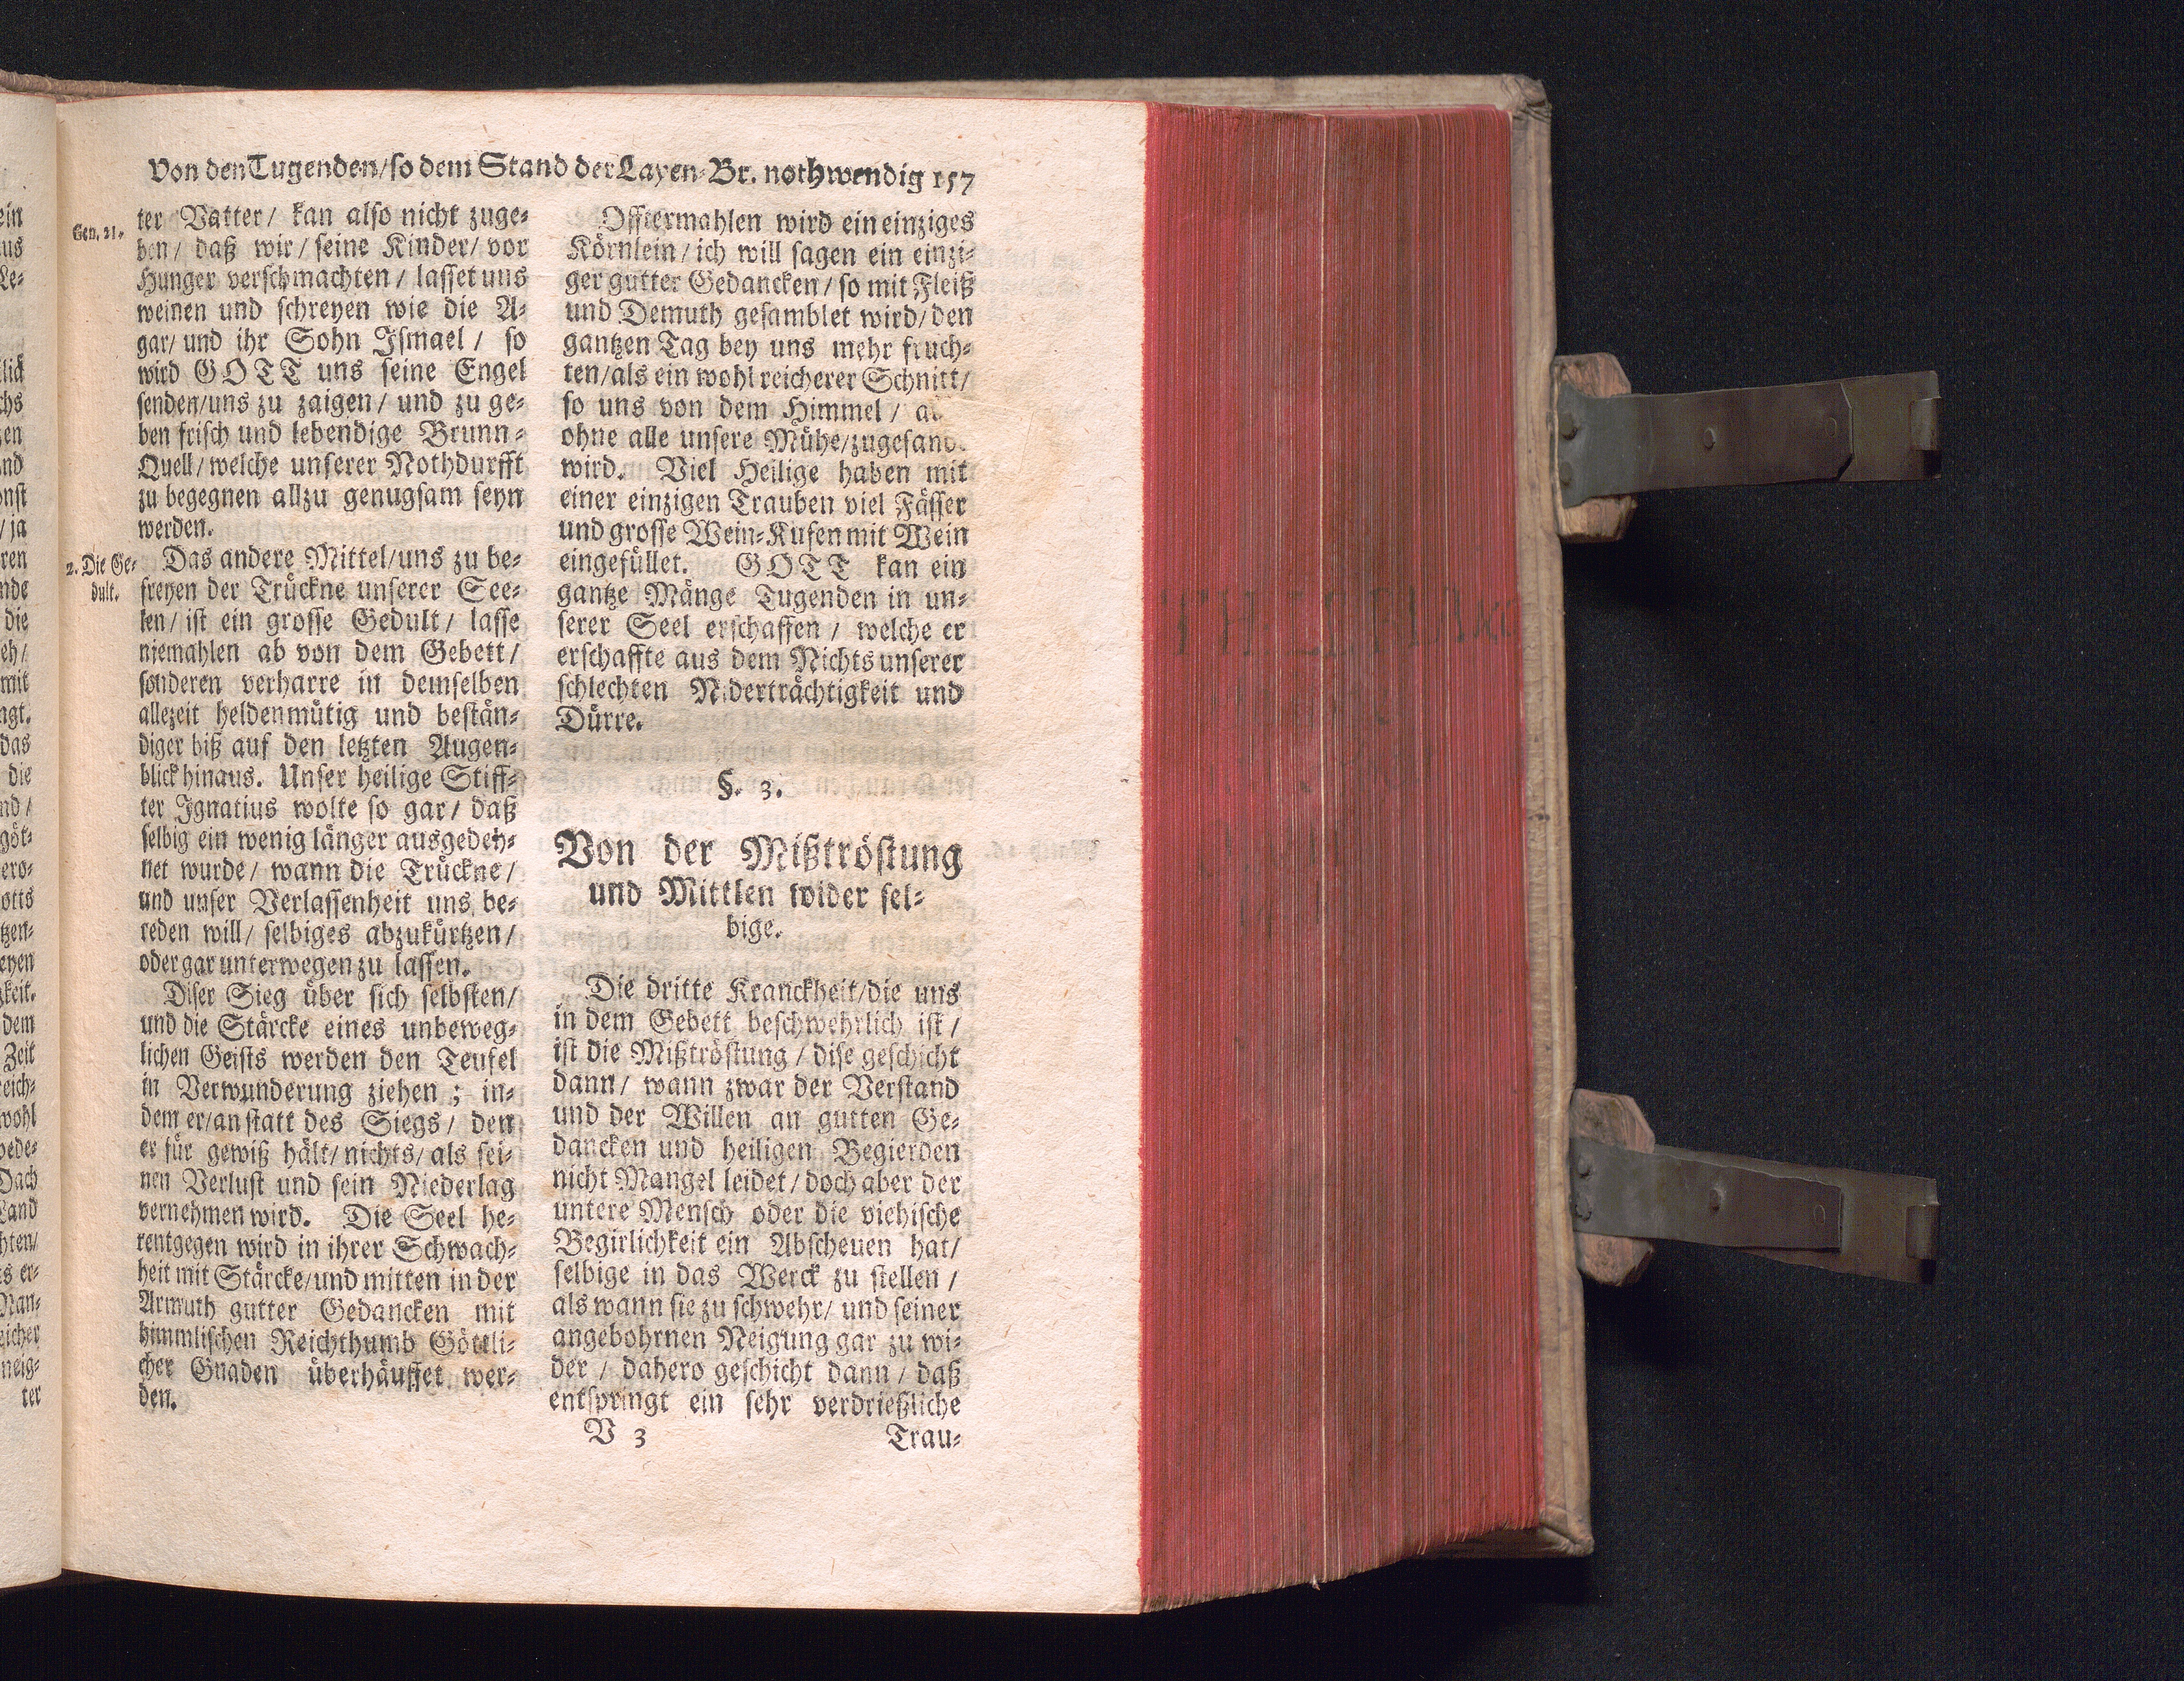 Von den Tugenden/ so dem Stand der Layen-Br. nothwendig 157
Gen. 21.
ter Vatter/ kan also nicht zuge-
ben/ daß wir/ seine Kinder/ vor
Hunger verschmachten/ lasset uns
weinen und schreyen wie die A-
gar/ und ihr Sohn Ismael/ so
wird GOTT uns seine Engel
senden/ uns zu zaigen/ und zu ge-
ben frisch und lebendige Brunn-
Quell/ welche unserer Nothdurfft
zu begegnen allzu genugsam seyn
werden.
2. Die Ge-
dult.
Das andere Mittel/ uns zu be-
freyen der Trückne unserer See-
len/ ist ein grosse Gedult/ lasse
niemahlen ab von dem Gebett/
sonderen verharre in demselben
allezeit heldenmütig und bestän-
diger biß auf den letzten Augen-
blick hinaus. Unser heilige Stiff-
ter Ignatius wolte so gar/ daß
selbig ein wenig länger ausgedeh-
net wurde/ wann die Trückne/
und unser Verlassenheit uns be-
reden will/ selbiges abzukürtzen/
oder gar unterwegen zu lassen.
Diser Sieg über sich selbsten/
und die Stärcke eines unbeweg-
lichen Geists werden den Teufel
in Verwunderung ziehen; in-
dem er/ an statt des Siegs/ den
er für gewiß hält/ nichts/ als sei-
nen Verlust und sein Niederlag
vernehmen wird. Die Seel he-
rentgegen wird in ihrer Schwach-
heit mit Stärcke/ und mitten in der
Armuth gutter Gedancken mit
himmlischen Reichthumb Göttli-
cher Gnaden überhäuffet wer-
den.
Offtermahlen wird ein einziges
Körnlein/ ich will sagen ein einzi-
ger gutter Gedancken/ so mit Fleiß
und Demuth gesamblet wird/ den
gantzen Tag bey uns mehr fruch-
ten/ als ein wohl reicherer Schnitt/
so uns von dem Himmel/
ohne alle unsere Mühe/ zugesand
wird. Viel Heilige haben mit
einer einzigen Trauben viel Fässer
und grosse Wein-Kufen mit Wein
eingefüllet. GOTT kan ein
gantze Mänge Tugenden in un-
serer Seel erschaffen/ welche er
erschaffte aus dem Nichts unserer
schlechten Niderträchtigkeit und
Dürre.
§. 3.
Von der Mißtröstung
und Mittlen wider sel-
bige.
Die dritte Kranckheit/ die uns
in dem Gebett beschwehrlich ist/
ist die Mißtröstung/ dise geschicht
dann/ wann zwar der Verstand
und der Willen an gutten Ge-
dancken und heiligen Begierden
nicht Mangel leidet/ doch aber der
untere Mensch oder die viehische
Begirlichkeit ein Abscheuen hat/
selbige in das Werck zu stellen/
als wann sie zu schwehr/ und seiner
angebohrnen Neigung gar zu wi-
der/ dahero geschicht dann/ daß
entspringt ein sehr verdrießliche
V 3
Trau-